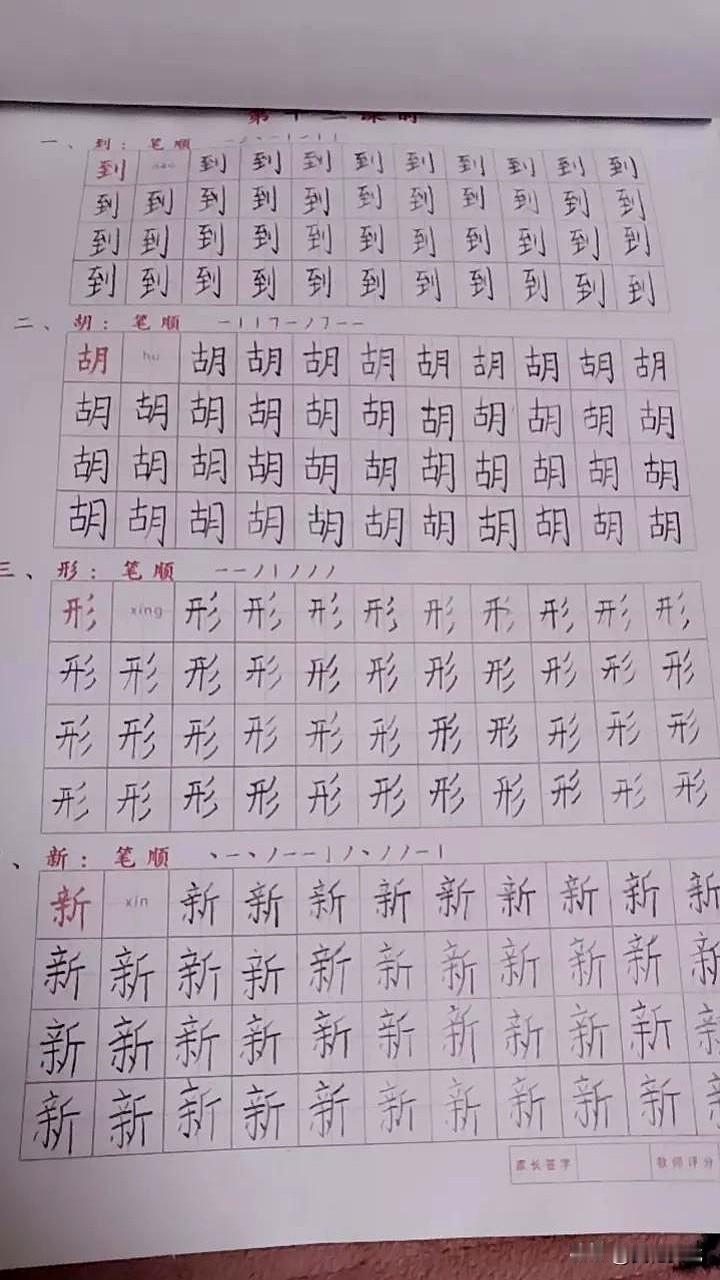 一、到：笔顺
到 到 到 到 到 到 到 到 到 到
到 到 到 到 到 到 到 到 到 到 到
到 到 到 到 到 到 到 到 到 到 到
到 到 到 到 到 到 到 到 到 到 到
二、胡：笔顺
胡 hu 胡 胡 胡 胡 胡 胡 胡 胡 胡
胡 胡 胡 胡 胡 胡 胡 胡 胡 胡 胡
胡 胡 胡 胡 胡 胡 胡 胡 胡 胡 胡
胡 胡 胡 胡 胡 胡 胡 胡 胡 胡 胡
三、形：笔顺
形 xing 形 形 形 形 形 形 形 形 形
形 形 形 形 形 形 形 形 形 形 形
形 形 形 形 形 形 形 形 形 形 形
形 形 形 形 形 形 形 形 形 形 形
、新：笔顺
新 xin 新 新 新 新 新 新 新 新 新
新 新 新 新 新 新 新 新 新 新 新
新 新 新 新 新 新 新 新 新 新 新
新 新 新 新 新 新 新 新 新 新 新
家长签字 教师评分